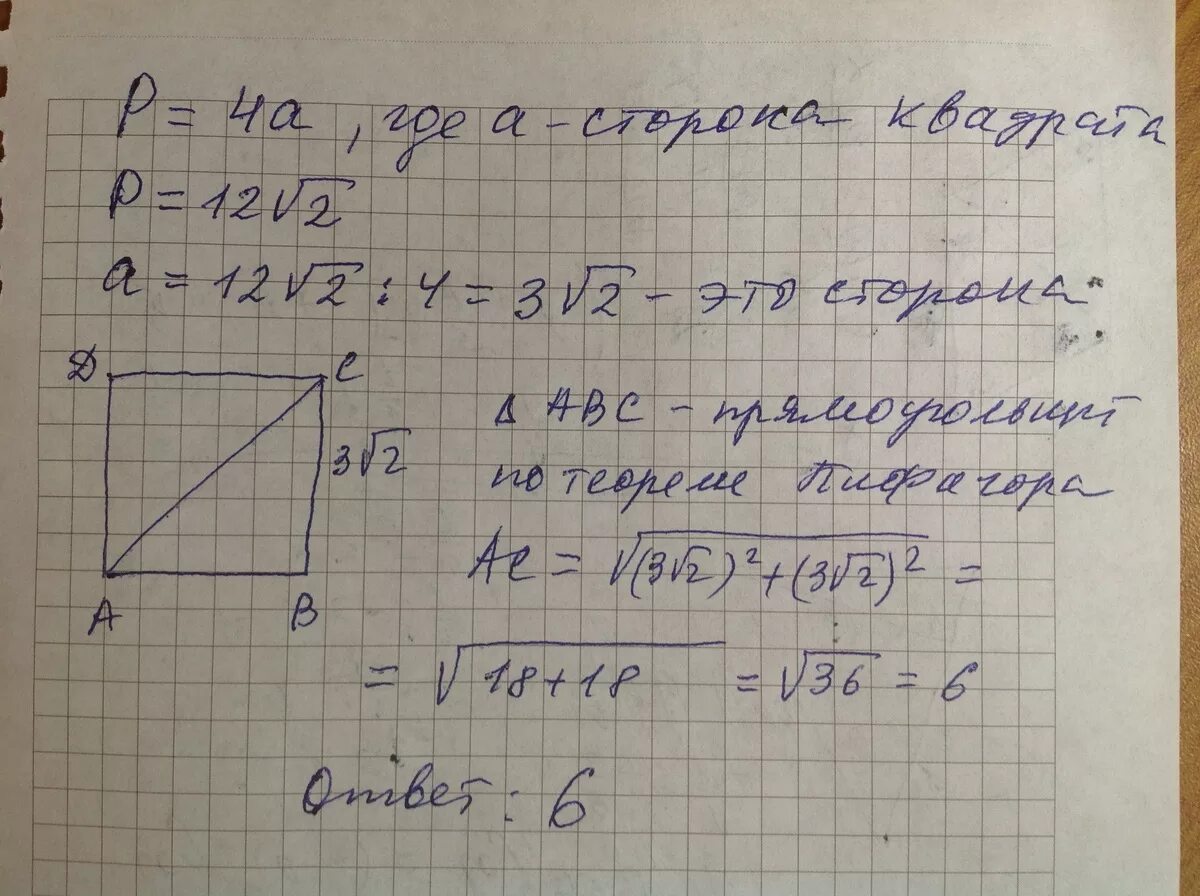 P = 4a, где a - сторона квадрата
P = 12√2
a = 12√2 : 4 = 3√2 - это сторона
D C
3√2
A B
Δ ABC - прямоугольный
по теореме Пифагора
AC = √(3√2)² + (3√2)² =
= √18+18 = √36 = 6
Ответ: 6